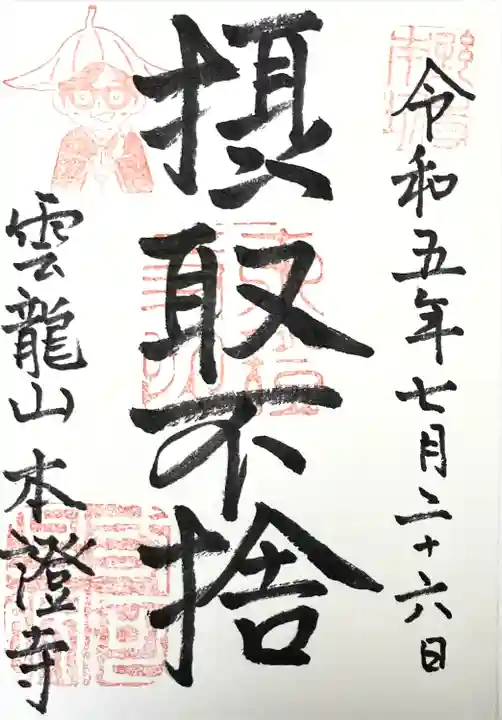 令和五年七月二十六日
摂取不捨
雲龍山本澄寺